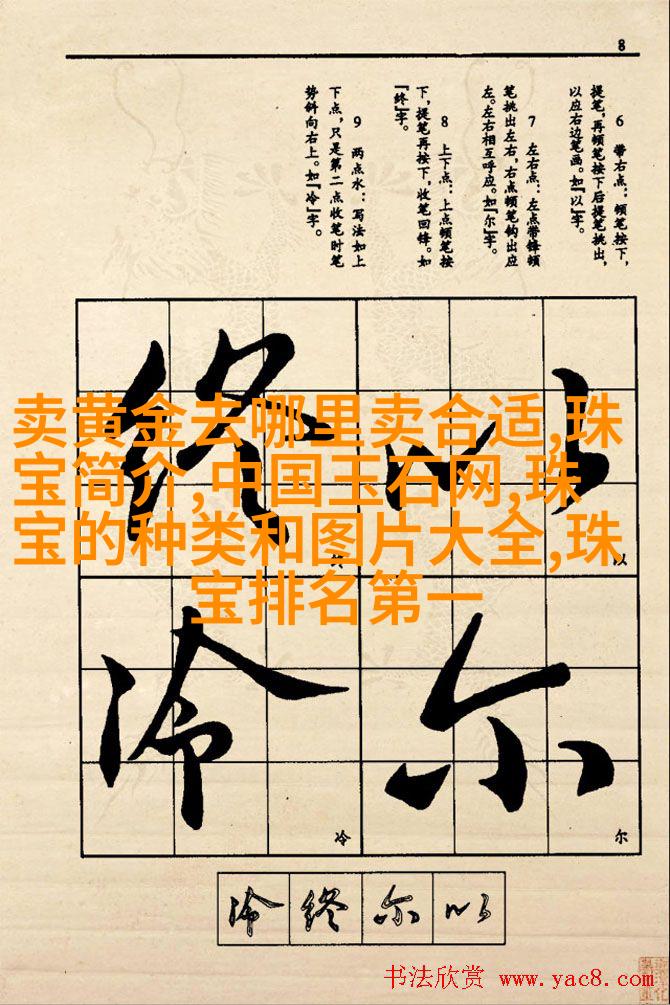 8
6 带右点：顿笔按下，
提笔，再顿笔按下后提笔挑出，
以应右边笔画。如『以』字。
7 左右点：左点带锋顿
笔挑出左右，右点顿笔钩出应
左。左右相互呼应。如『尔』字。
8 上下点：上点顿笔按
下，提笔再按下，收笔回锋。如
『终』字。
9 两点水：写法如上
下点，只是第二点收笔时笔
势斜向右上。如『冷』字。
卖黄金去哪里卖合适,珠
宝简介,中国玉石网,珠
宝的种类和图片大全,珠
宝排名第一
终 以
以
冷 尔
冷 尔
冷 终 尔 以
书法欣赏 www.yac8.com